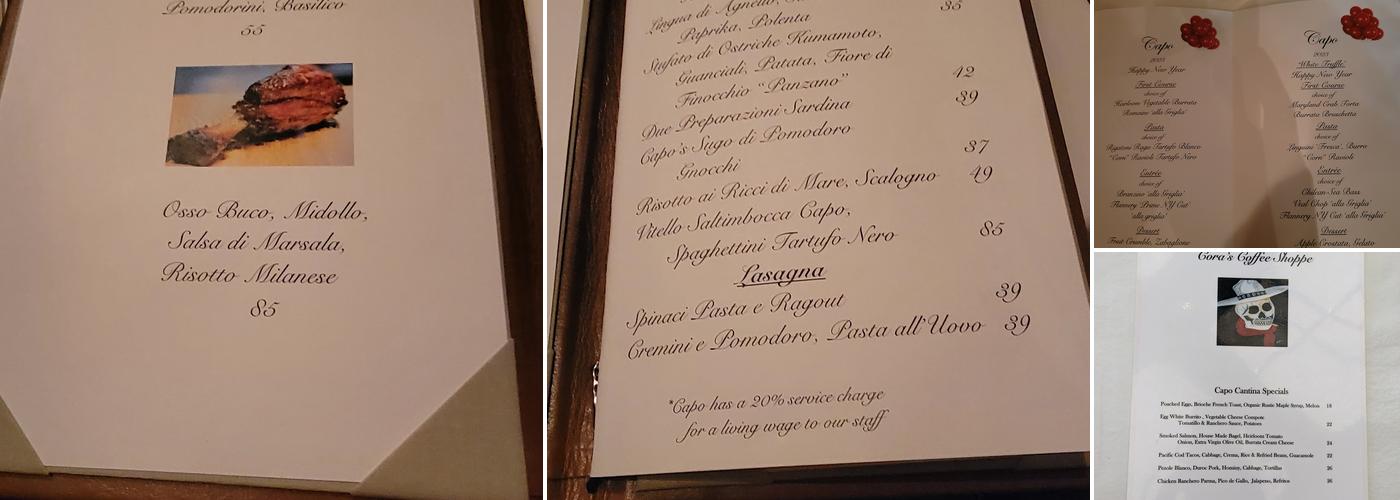 Pomodorini, Basilico
55
Osso Buco, Midollo,
Salsa di Marsala,
Risotto Milanese
85
Lingua di Agnello,
Paprika, Polenta 35
Sufato di Ostriche Kumamoto,
Guanciali, Patata, Fiore di
Finocchio "Panzano" 42
Due Preparazioni Sardina 39
Capo's Sugo di Pomodoro
Gnocchi 37
Risotto ai Ricci di Mare, Scalogno 49
Vitello Saltimbocca Capo,
Spaghettini Tartufo Nero 85
Lasagna
Spinaci Pasta e Ragout 39
Cremini e Pomodoro, Pasta all'Uovo 39
*Capo has a 20% service charge
for a living wage to our staff
Capo
2023
Happy New Year
First Course
choice of
Heirloom Vegetable Burrata
Romaine 'alla Griglia'
Pasta
choice of
Rigatoni Ragu Tartufo Bianco
"Corn" Ravioli Tartufo Nero
Entrée
choice of
Branzino 'alla Griglia'
Flannery 'Prime NY Cut'
'alla griglia'
Dessert
Fruit Crumble, Zabaglione
Capo
2023
'White Truffle'
Happy New Year
First Course
choice of
Maryland Crab Torta
Burrata Bruschetta
Pasta
choice of
Linguini 'Fresca', Burro
"Corn" Ravioli
Entrée
choice of
Chilean Sea Bass
Veal Chop 'alla Griglia'
Flannery NY Cut 'alla Griglia'
Dessert
Apple Crostata, Gelato
Cora's Coffee Shoppe
Capo Cantina Specials
Poached Eggs, Brioche French Toast, Organic Rustic Maple Syrup, Melon 18
Egg White Burrito, Vegetable Cheese Compote
Tomatillo & Ranchero Sauce, Potatoes 22
Smoked Salmon, House Made Bagel, Heirloom Tomato
Onion, Extra Virgin Olive Oil, Burrata Cream Cheese 24
Pacific Cod Tacos, Cabbage, Crema, Rice & Refried Beans, Guacamole 22
Pozole Blanco, Duroc Pork, Hominy, Cabbage, Tortillas 26
Chicken Ranchero Parma, Pico de Gallo, Jalapeno, Refritos 26